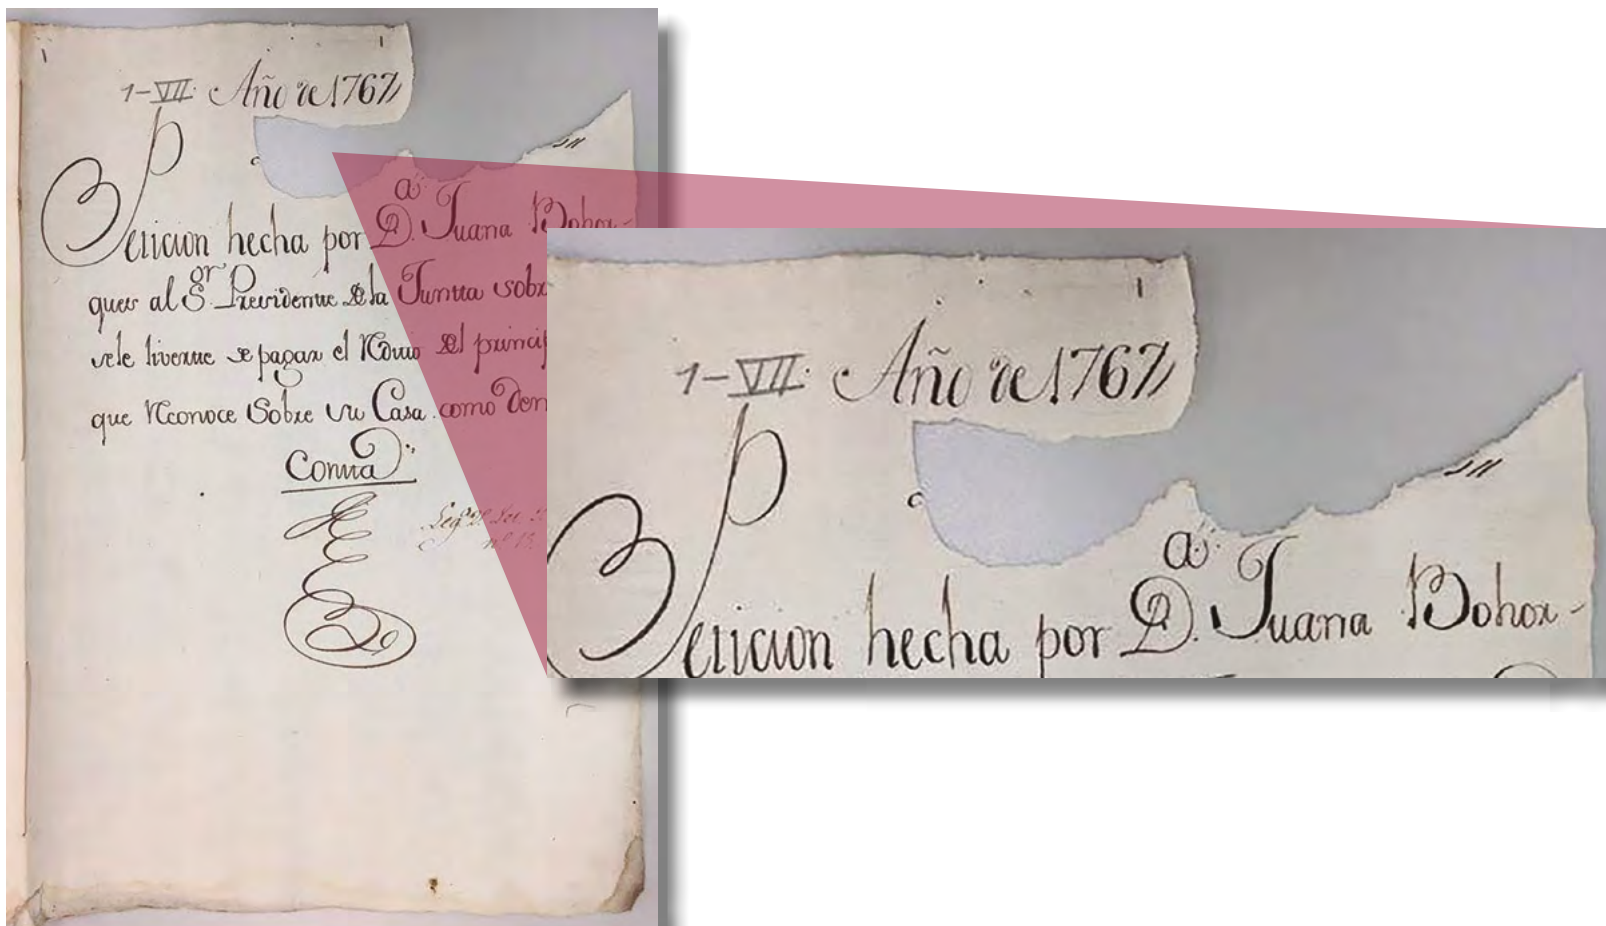 1-VII. Año de 1767
Peticion hecha por D.ª Juana Bohor-
ques al S.or Presidente de la Juntta sobre
sele livertte se pagar el Rédito del princip
que Reconoce Sobre su Casa como den
Contta
nº 13.
1-VII. Año de 1767
Peticion hecha por D.ª Juana Bohor-